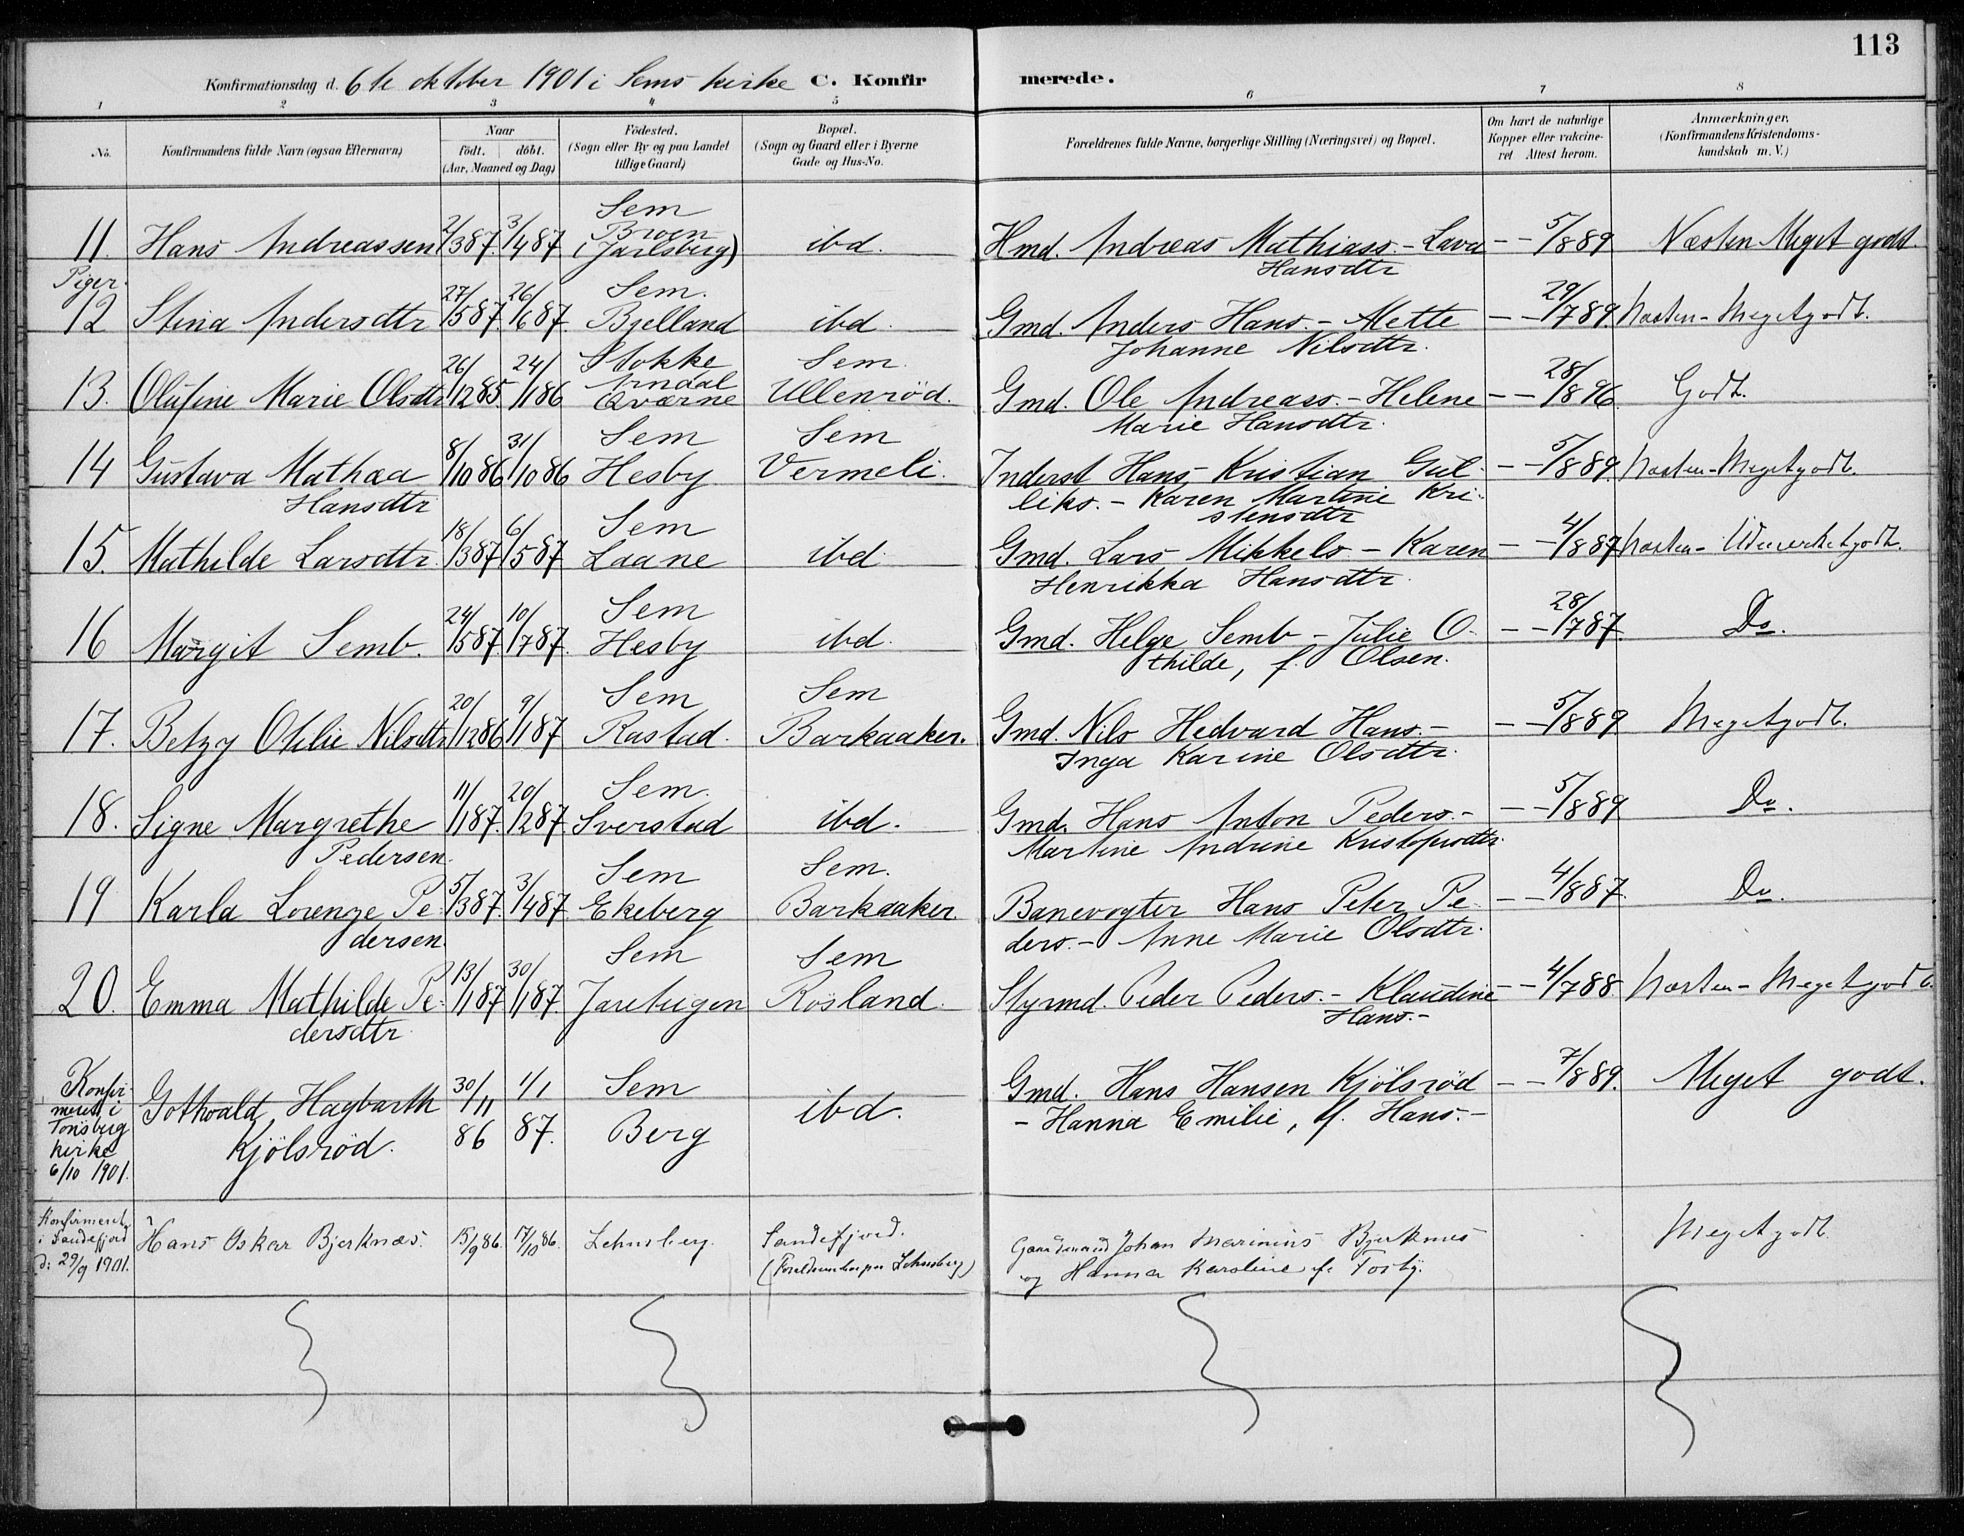 113
Konfirmationsdag d. 6te oktober 1901 i Sems kirke C. Konfirmerede.
1 2 3 4 5 6 7 8
No. Konfirmandens fulde Navn (ogsaa Efternavn) Naar födt. döbt. (Aar, Maaned og Dag) Födested. (Sogn eller By og paa Landet tillige Gaard) Bopæl. (Sogn og Gaard eller i Byerne Gade og Hus-No. Forældrenes fulde Navne, borgerlige Stilling (Næringsvei) og Bopæl. Om havt de naturlige Kopper eller vakcineret Attest herom. Anmærkninger. (Konfirmandens Kristendomskundskab m. V.)
Sem
Broen
11. Hans Andreassen 2/3 87. 3/4 87 (Jarlsberg) ibd. Hmd. Andreas Mathiass. - Lava - - 5/8 89 Næsten Meget godt
Hansdtr
Piger.
Sem.
12 Stina Andersdtr 27/5 87. 26/6 87 Bjelland ibd. Gmd. Anders Hans. - Mette - - 29/7 89. Næsten - Megetgodt.
Johanne Nilsdtr.
Stokke Sem.
Arndal
13. Olufine Marie Olsdtr 26/12 85. 24/1 86 Qværne Ullenröd. Gmd. Ole Andreass. - Helene - - 28/8 96. Godt.
Marie Hansdtr.
Sem Sem
14 Gustava Mathea 8/10 86 31/10 86 Hesby Vermeli. Inderst Hans Kristian Gul- - - 5/8 89. Næsten - Megetgodt.
Hansdtr liks. - Karen Martine Kri-
stensdtr
Sem
15. Mathilde Larsdtr. 18/3 87. 6/5 87 Laane ibd Gmd. Lars Mikkels. - Karen - - 4/8 87 Næsten - Udmerketgodt.
Henrikka Hansdtr.
Sem
16 Margit Semb. 24/5 87. 10/7 87. Hesby ibd. Gmd. Helge Semb - Julie O- - - 28/7 87. Do.
thilde, f. Olsen.
Sem Sem
17. Betzy Otilie Nilsdtr 20/12 86 9/1 87 Rastad. Barkaaker. Gmd. Nils Hedvard Hans. - - - 5/8 89 Megetgodt.
Inga Karine Olsdtr.
Sem.
18. Signe Margrethe 11/1 87. 20/2 87 Sverstad ibd. Gmd. Hans Anton Peders. - - - 5/8 89 Do.
Pedersen. Martine Andrine Kristofersdtr.
Sem Sem.
19 Karla Lorenze Pe- 5/3 87. 3/4 87 Ekeberg Barkaaker. Banevogter Hans Peter Pe- - - 4/8 87. Do.
dersen. ders. - Anne Marie Olsdtr.
Sem Sem
20. Emma Mathilde Pe- 13/1 87 30/1 87. Jareteigen Rösland. Styrmd. Peder Peders. - Klaudine - - 4/7 88. Næsten - Megetgodt.
dersdtr Hans. -
Konfirmeret i Tönsberg kirke 6/10 1901. Gothvald Hagbarth Kjölsröd. 30/11 86 1/1 87. Sem Berg ibd. Gmd. Hans Hansen Kjölsröd - - 7/8 89. Meget godt.
- Hanna Emilie, f. Hans. -
Konfirmeret i Sandefjord d: 29/9 1901. Hans Oskar Bjerknæs. 15/9 86. 17/10 86. Lehnsberg. Sandefjord. Gaardmand Johan Marinius Bjerknes Megetgodt.
og Hanna Karoline f. Fosby.